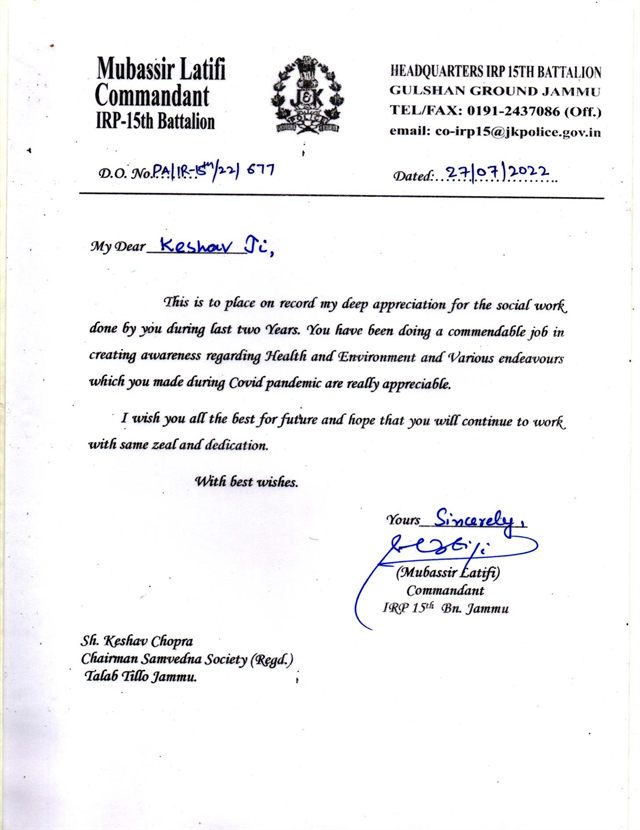 Mubassir Latifi
Commandant
IRP-15th Battalion
J&K
POLICE
HEADQUARTERS IRP 15TH BATTALION
GULSHAN GROUND JAMMU
TEL/FAX: 0191-2437086 (Off.)
email: co-irp15@jkpolice.gov.in
D.O. No.PA/IR-15th/22/677
Dated:..27/07/2022..........
My Dear Keshav Ji,
This is to place on record my deep appreciation for the social work
done by you during last two Years. You have been doing a commendable job in
creating awareness regarding Health and Environment and Various endeavours
which you made during Covid pandemic are really appreciable.
I wish you all the best for future and hope that you will continue to work
with same zeal and dedication.
With best wishes.
Yours Sincerely,
(Mubassir Latifi)
Commandant
IRP 15th Bn. Jammu
Sh. Keshav Chopra
Chairman Samvedna Society (Regd.)
Talab Tillo Jammu.